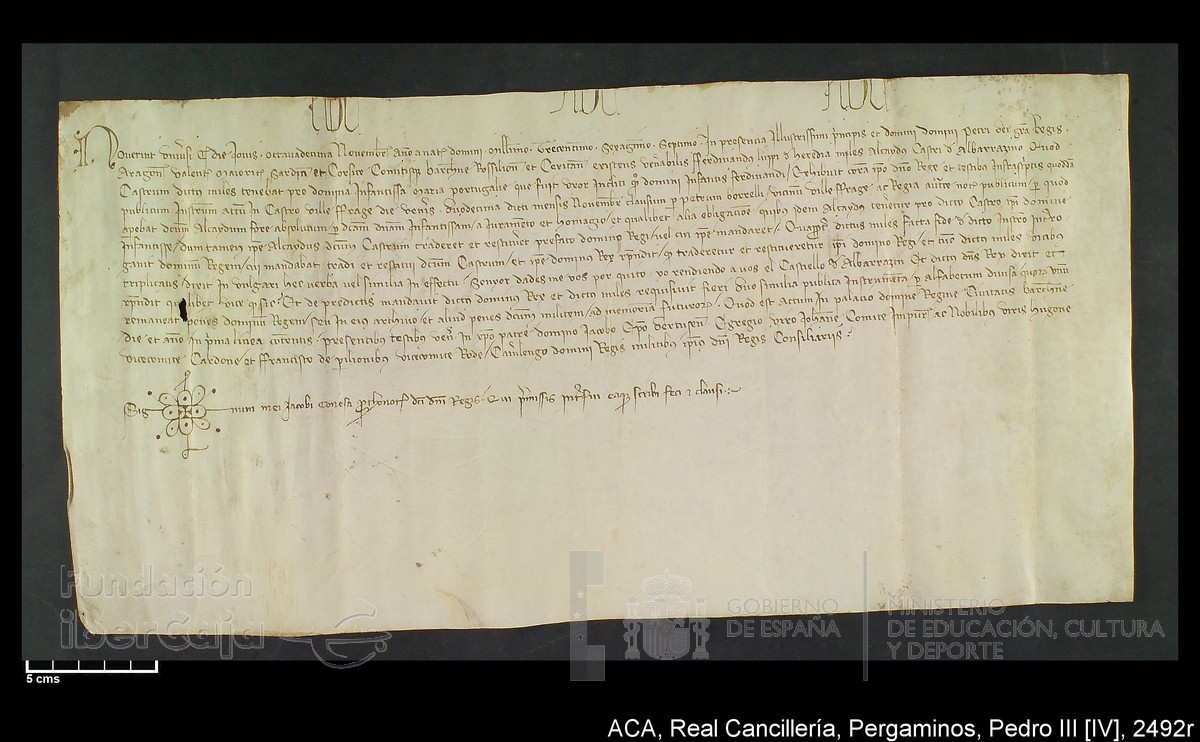 Noverint universi qd die Jovis, octavadecima Novembr Año anat domini Millimo Trecentesimo Sexagesimo Septimo. In presencia Illustrissimi principis et domini domini Petri dei gra Regis
Aragonu Valent Maioricar Sardin et Corsice Comitisqz barchne Rossilion et Ceritan existens ven'abilis Fferdinandus luppi d heredia miles Alcaydus Castri d Albarrazino Quod
Castrum dictus miles tenebat pro domina Infantissa Maria portugalie que fuit uxor Incliti domini Infantis fferdinandi / Exhibuit cora ipo dno Rege et testib Infrascriptis quodda
publicum Instrum in Castro ville ffrage die Ven'is duodecima dicti mensis Novembr clausum p petrum borrelli ville ffrage ac Regia auctte not publicum p quod
apebat dcum Alcaydum fore absolutum p dcam dnam Infantissam / a Iuramento et homagio et qualibet alia obligacione quibus idem Alcaydus tenetur pro dicto Castro ipi domine
Infantisse / Dumtamen ipe Alcaydus dcum Castrum traderet et restitueret prefato domino Regi / vel cui ipe mandaret / Quapp dictus miles facta fede d dicto Instro
domini Regem / cui mandabat tradi et restitui dcum Castrum / et ipe dominus Rex rndit qd traderetur et restitueretur ipi domino Regi et tuc dictus miles vicibus
triplicatis / dixit in vulgari hec verba vel similia in effectu / Senyor dades me vos por quito yo rendiendo a vos el Castiello d Albarrazin Et dictus dns Rex dixit et
rndit qualibet vice q sic / Et de predictis mandavit dictus dominus Rex et dictus miles requisivit fieri duo similia publica Instrumenta p alfabetum divisa quorz unu
remaneat penes dominum Regem / seu in eius archivio et aliud penes dcum militem / ad memoriam futurorz. Quod est actum In palacio domine Regine Civitatis barchne
die et año in prima linea cotentis presentibus testibus ven' in xpo patre domino Jacobo Epo dertusen Egregio viro Johane Comite Impuriar ac Nobilibus viris hugone
vicecomite Cardone / et ffrancisco de p'ilionibus vicecomite Rode / Camlengo domini Regis militibus ipius dni Regis Consiliariis
Sig num mei Jacobi Conesa prothonot dci dni Regis / Qui premissis int'fui eaqz scribi feci et clausi
Fundación
iberCaja
GOBIERNO
DE ESPAÑA
MINISTERIO
DE EDUCACIÓN, CULTURA
Y DEPORTE
5 cms
ACA, Real Cancillería, Pergaminos, Pedro III [IV], 2492r